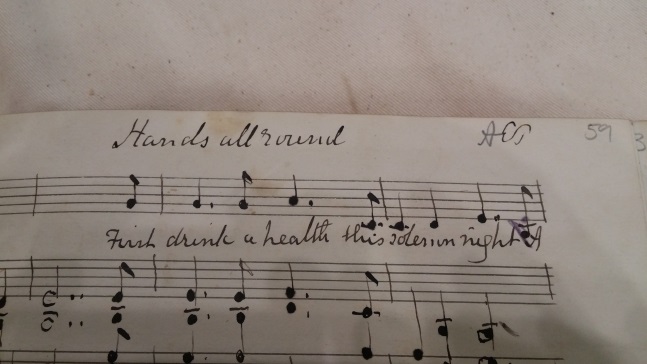 Hands all round AET 59
First drink a health this solemn night A